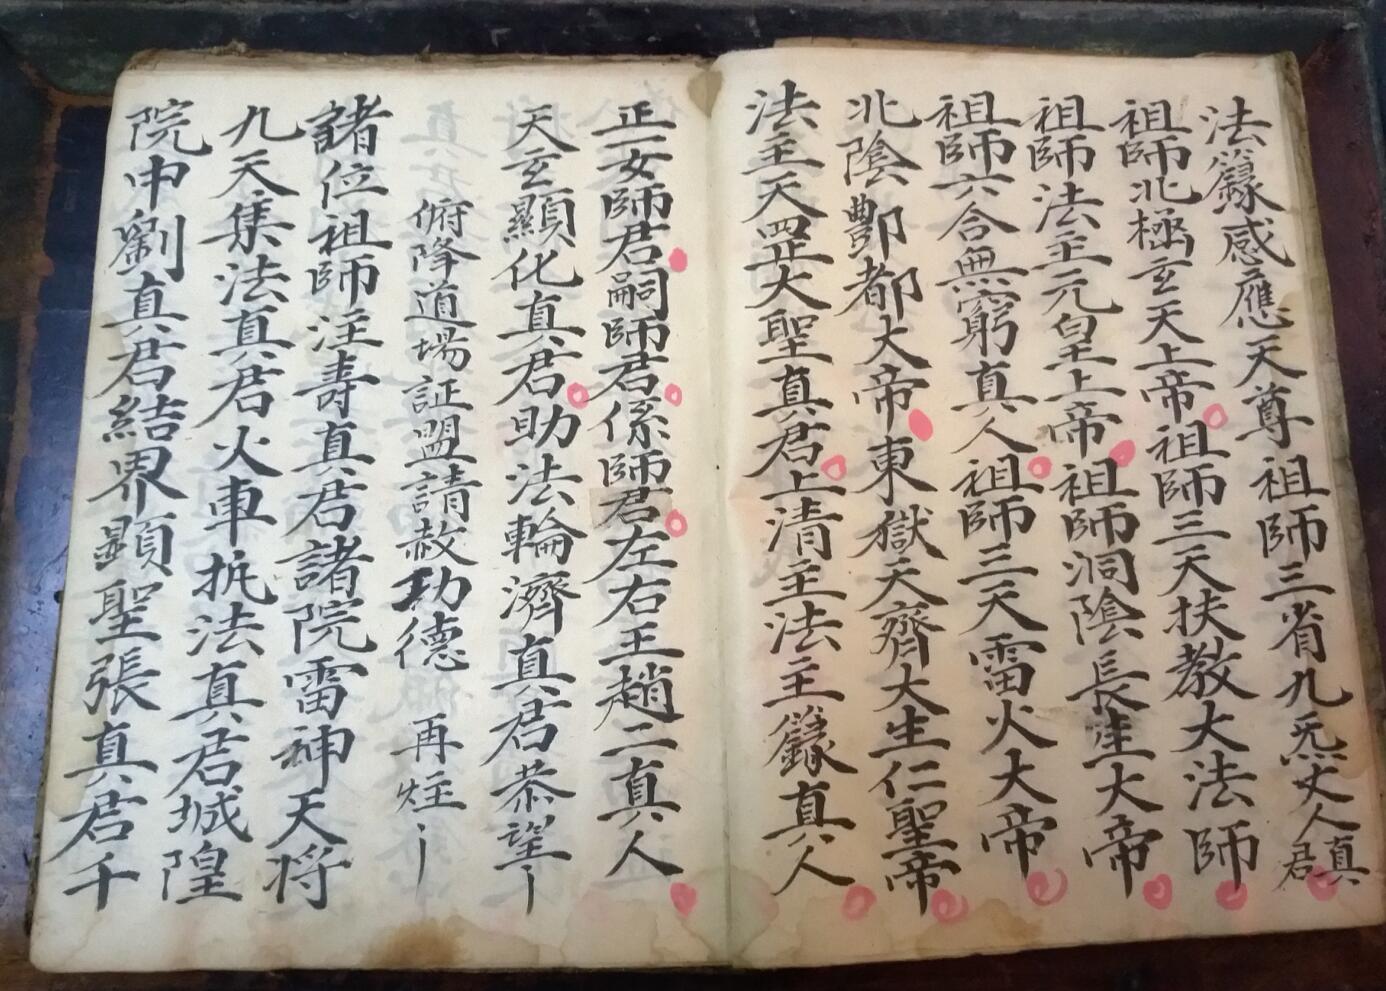 法籙感應天尊祖師三省九炁丈人真君
祖師北極玄天上帝祖師三天扶教大法師
祖師法主元皇上帝祖師洞陰長生大帝
祖師六合無窮真人祖師三天雷火大帝
北陰酆都大帝東獄天齊大生仁聖帝
法主天罡大聖真君上清主法主籙真人
正一女師君嗣師君係師君左右王趙二真人
天玄顯化真君助法輪濟真君恭望
俯降道場証盟請赦功德 再炷
諸位祖師注壽真君諸院雷神天将
九天集法真君火車法真君城隍
院申劉真君結界顕聖張真君千